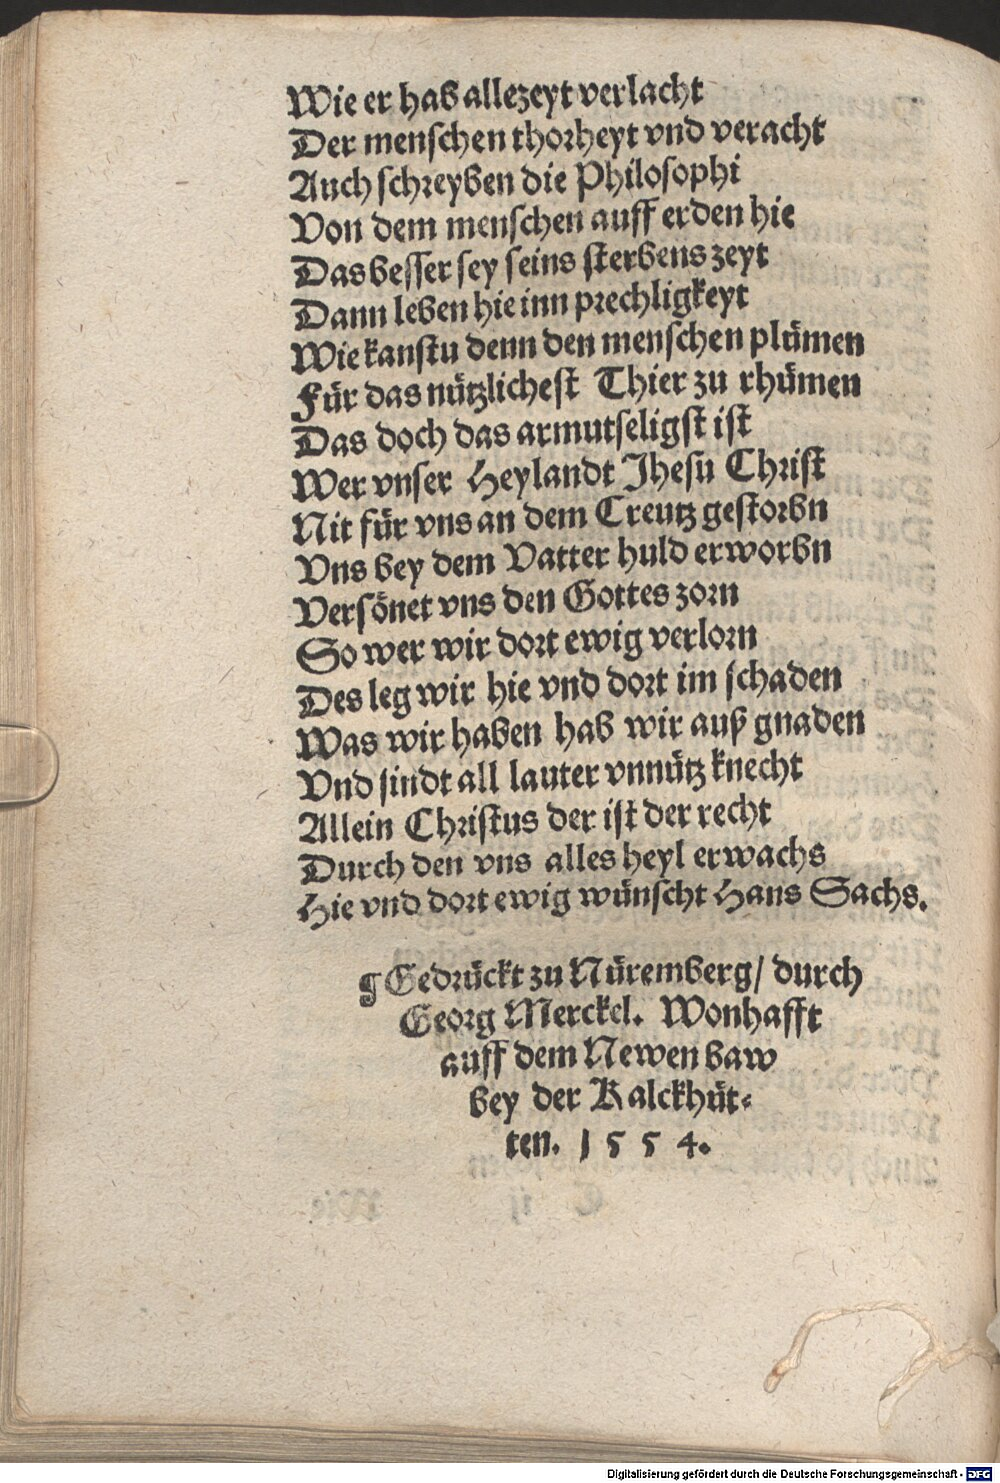 Wie er hab allezeyt verlacht
Der menschen thorheyt vnd veracht
Auch schreyben die Philosophi
Von dem menschen auff erden hie
Das besser sey seins sterbens zeyt
Dann leben hie inn prechligkeyt
Wie kanstu denn den menschen plümen
Für das nützlichest Thier zu rhümen
Das doch das armutseligst ist
Wer vnser Heylandt Jhesu Christ
Nit für vns an dem Creutz gestorbn
Vns bey dem Vatter huld erworbn
Versönet vns den Gottes zorn
So wer wir dort ewig verlorn
Des leg wir hie vnd dort im schaden
Was wir haben hab wir auß gnaden
Vnd sindt all lauter vnnütz knecht
Allein Christus der ist der recht
Durch den vns alles heyl erwachs
Hie vnd dort ewig wünscht Hans Sachs.
¶ Gedrückt zu Nüremberg/ durch
Georg Merckel. Wonhafft
auff dem Newen baw
bey der Kalckhüt⸗
ten. 1 5 5 4.
Digitalisierung gefördert durch die Deutsche Forschungsgemeinschaft - DFG